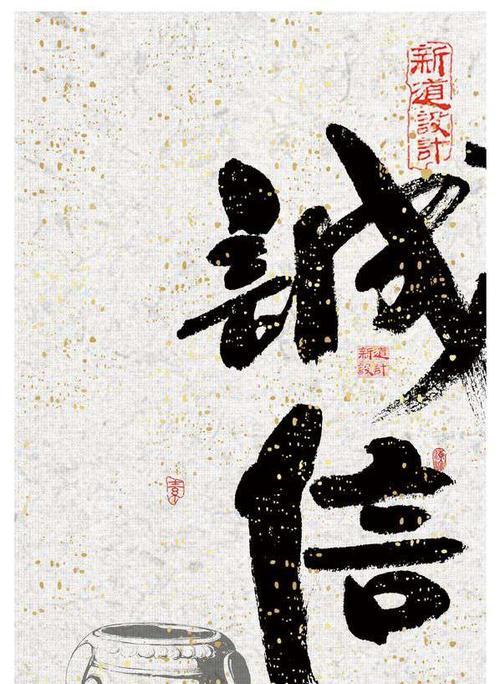 新道設計
誠信
新道
設計